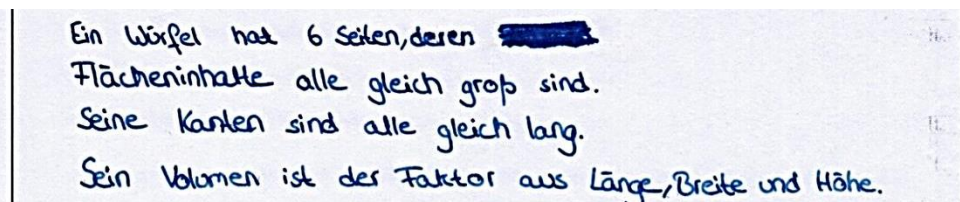 Ein Würfel hat 6 Seiten, deren
Flächeninhalte alle gleich groß sind.
Seine Kanten sind alle gleich lang.
Sein Volumen ist der Faktor aus Länge, Breite und Höhe.